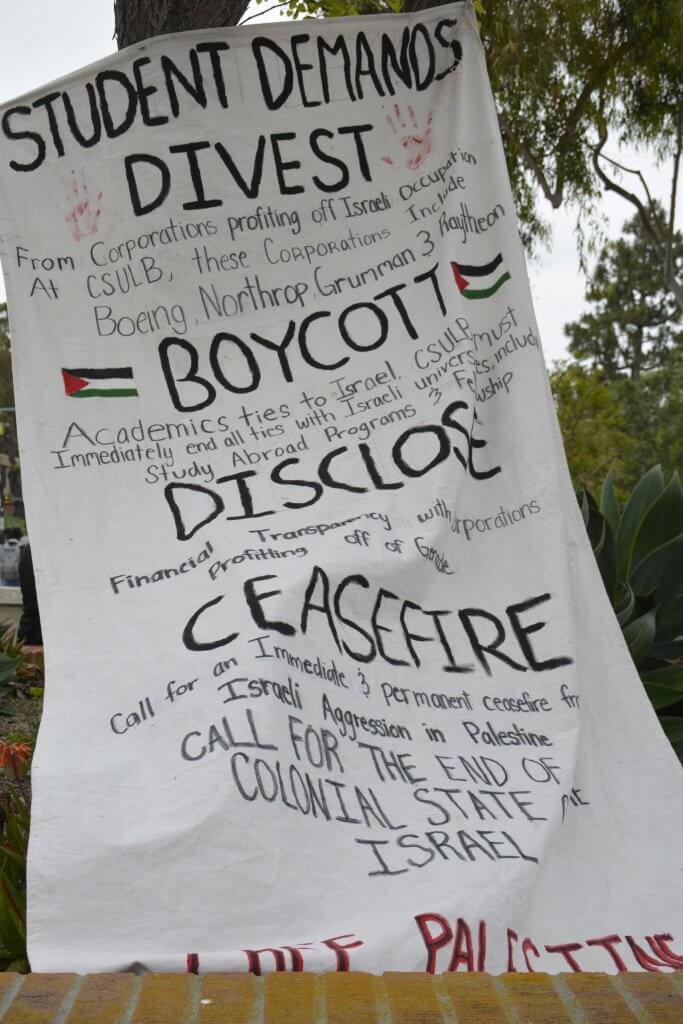 STUDENT DEMANDS
DIVEST
From Corporations profiting off Israeli Occupation
At CSULB, these Corporations Include
Boeing, Northrop, Grumman & Raytheon
BOYCOTT
Academics ties to Israel. CSULB must
Immediately end all ties with Israeli
Study Abroad Programs &
DISCLOSE
Financial Transparency with
profitting off of
CEASEFIRE
Call for an Immediate & permanent ceasefire
Israeli Aggression in Palestine
CALL FOR THE END OF
COLONIAL STATE
ISRAEL
PALESTINE